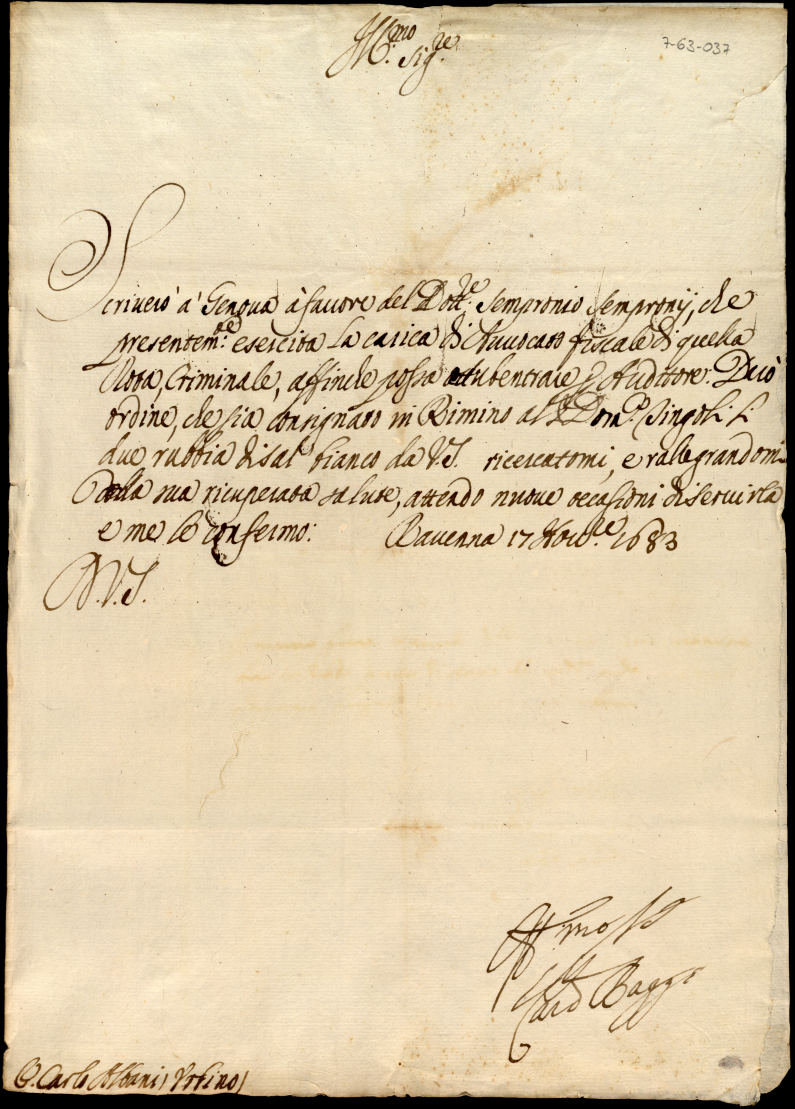 Ill.mo Sig.re
7-63-037
Scriverò à Genova à favore del Dott.re Sempronio Sempronij, che
presentem.te esercita la carica di Avvocato fiscale di quella
Rota Criminale, affinche possa subentrare Auditore. Darò
ordine, che sia consignato in Rimino al Dom.co Singoli li
due rubbia di sal bianco da V.S. ricercatomi, e rallegrandomi
della sua ricuperata salute, attendo nuove occasioni di servirla
e me le confermo. Ravenna 17 Nov.re 1683
D. V. S.
Aff.mo
Card Raggi
D. Carlo Albani (Urbino)